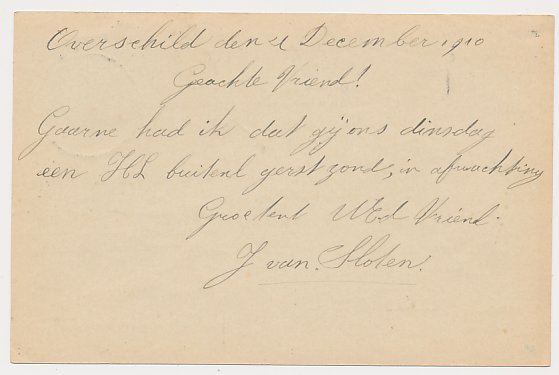 Overschild den 4 December 1910
Geachte Vriend!
Gaarne had ik dat gij ons dinsdag
een HL buitenl gerst zond, in afwachting
Groetent UEd Vriend.
J van Sloten.